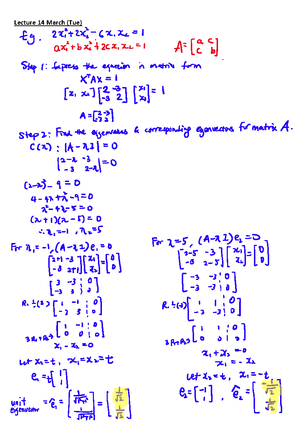 Lecture 14 March (Tue)
Eg. 2x₁² + 2x₂² - 6x₁x₂ = 1
ax₁² + bx₂² + 2cx₁x₂ = 1 A = [a c; c b]
Step 1: Express the equation in matrix form
XᵀAX = 1
[x₁ x₂] [2 -3; -3 2] [x₁; x₂] = 1
A = [2 -3; -3 2]
Step 2: Find the eigenvalues & corresponding eigenvectors for matrix A.
C(λ): |A - λI| = 0
|2-λ -3; -3 2-λ| = 0
(2-λ)² - 9 = 0
4 - 4λ + λ² - 9 = 0
λ² - 4λ - 5 = 0
(λ+1)(λ-5) = 0
∴ λ₁ = -1, λ₂ = 5
For λ₁ = -1, (A - λI) e₁ = 0
[2+1 -3; -3 2+1] [x₁; x₂] = [0; 0]
[3 -3 | 0; -3 3 | 0]
[1 -1 | 0; -3 3 | 0]
[1 -1 | 0; 0 0 | 0]
x₁ - x₂ = 0
Let x₂ = t, x₁ = x₂ = t
e₁ = t [1; 1]
unit eigenvector = ê₁ = = [1/√2; 1/√2]
For λ = 5, (A - λI) e₂ = 0
[2-5 -3; -3 2-5] [x₁; x₂] = [0; 0]
[-3 -3 | 0; -3 -3 | 0]
[1 1 | 0; -3 -3 | 0]
[1 1 | 0; 0 0 | 0]
x₁ + x₂ = 0
x₁ = -x₂
Let x₂ = t, x₁ = -t
e₂ = [-1; 1], ê₂ = [-1/√2; 1/√2]